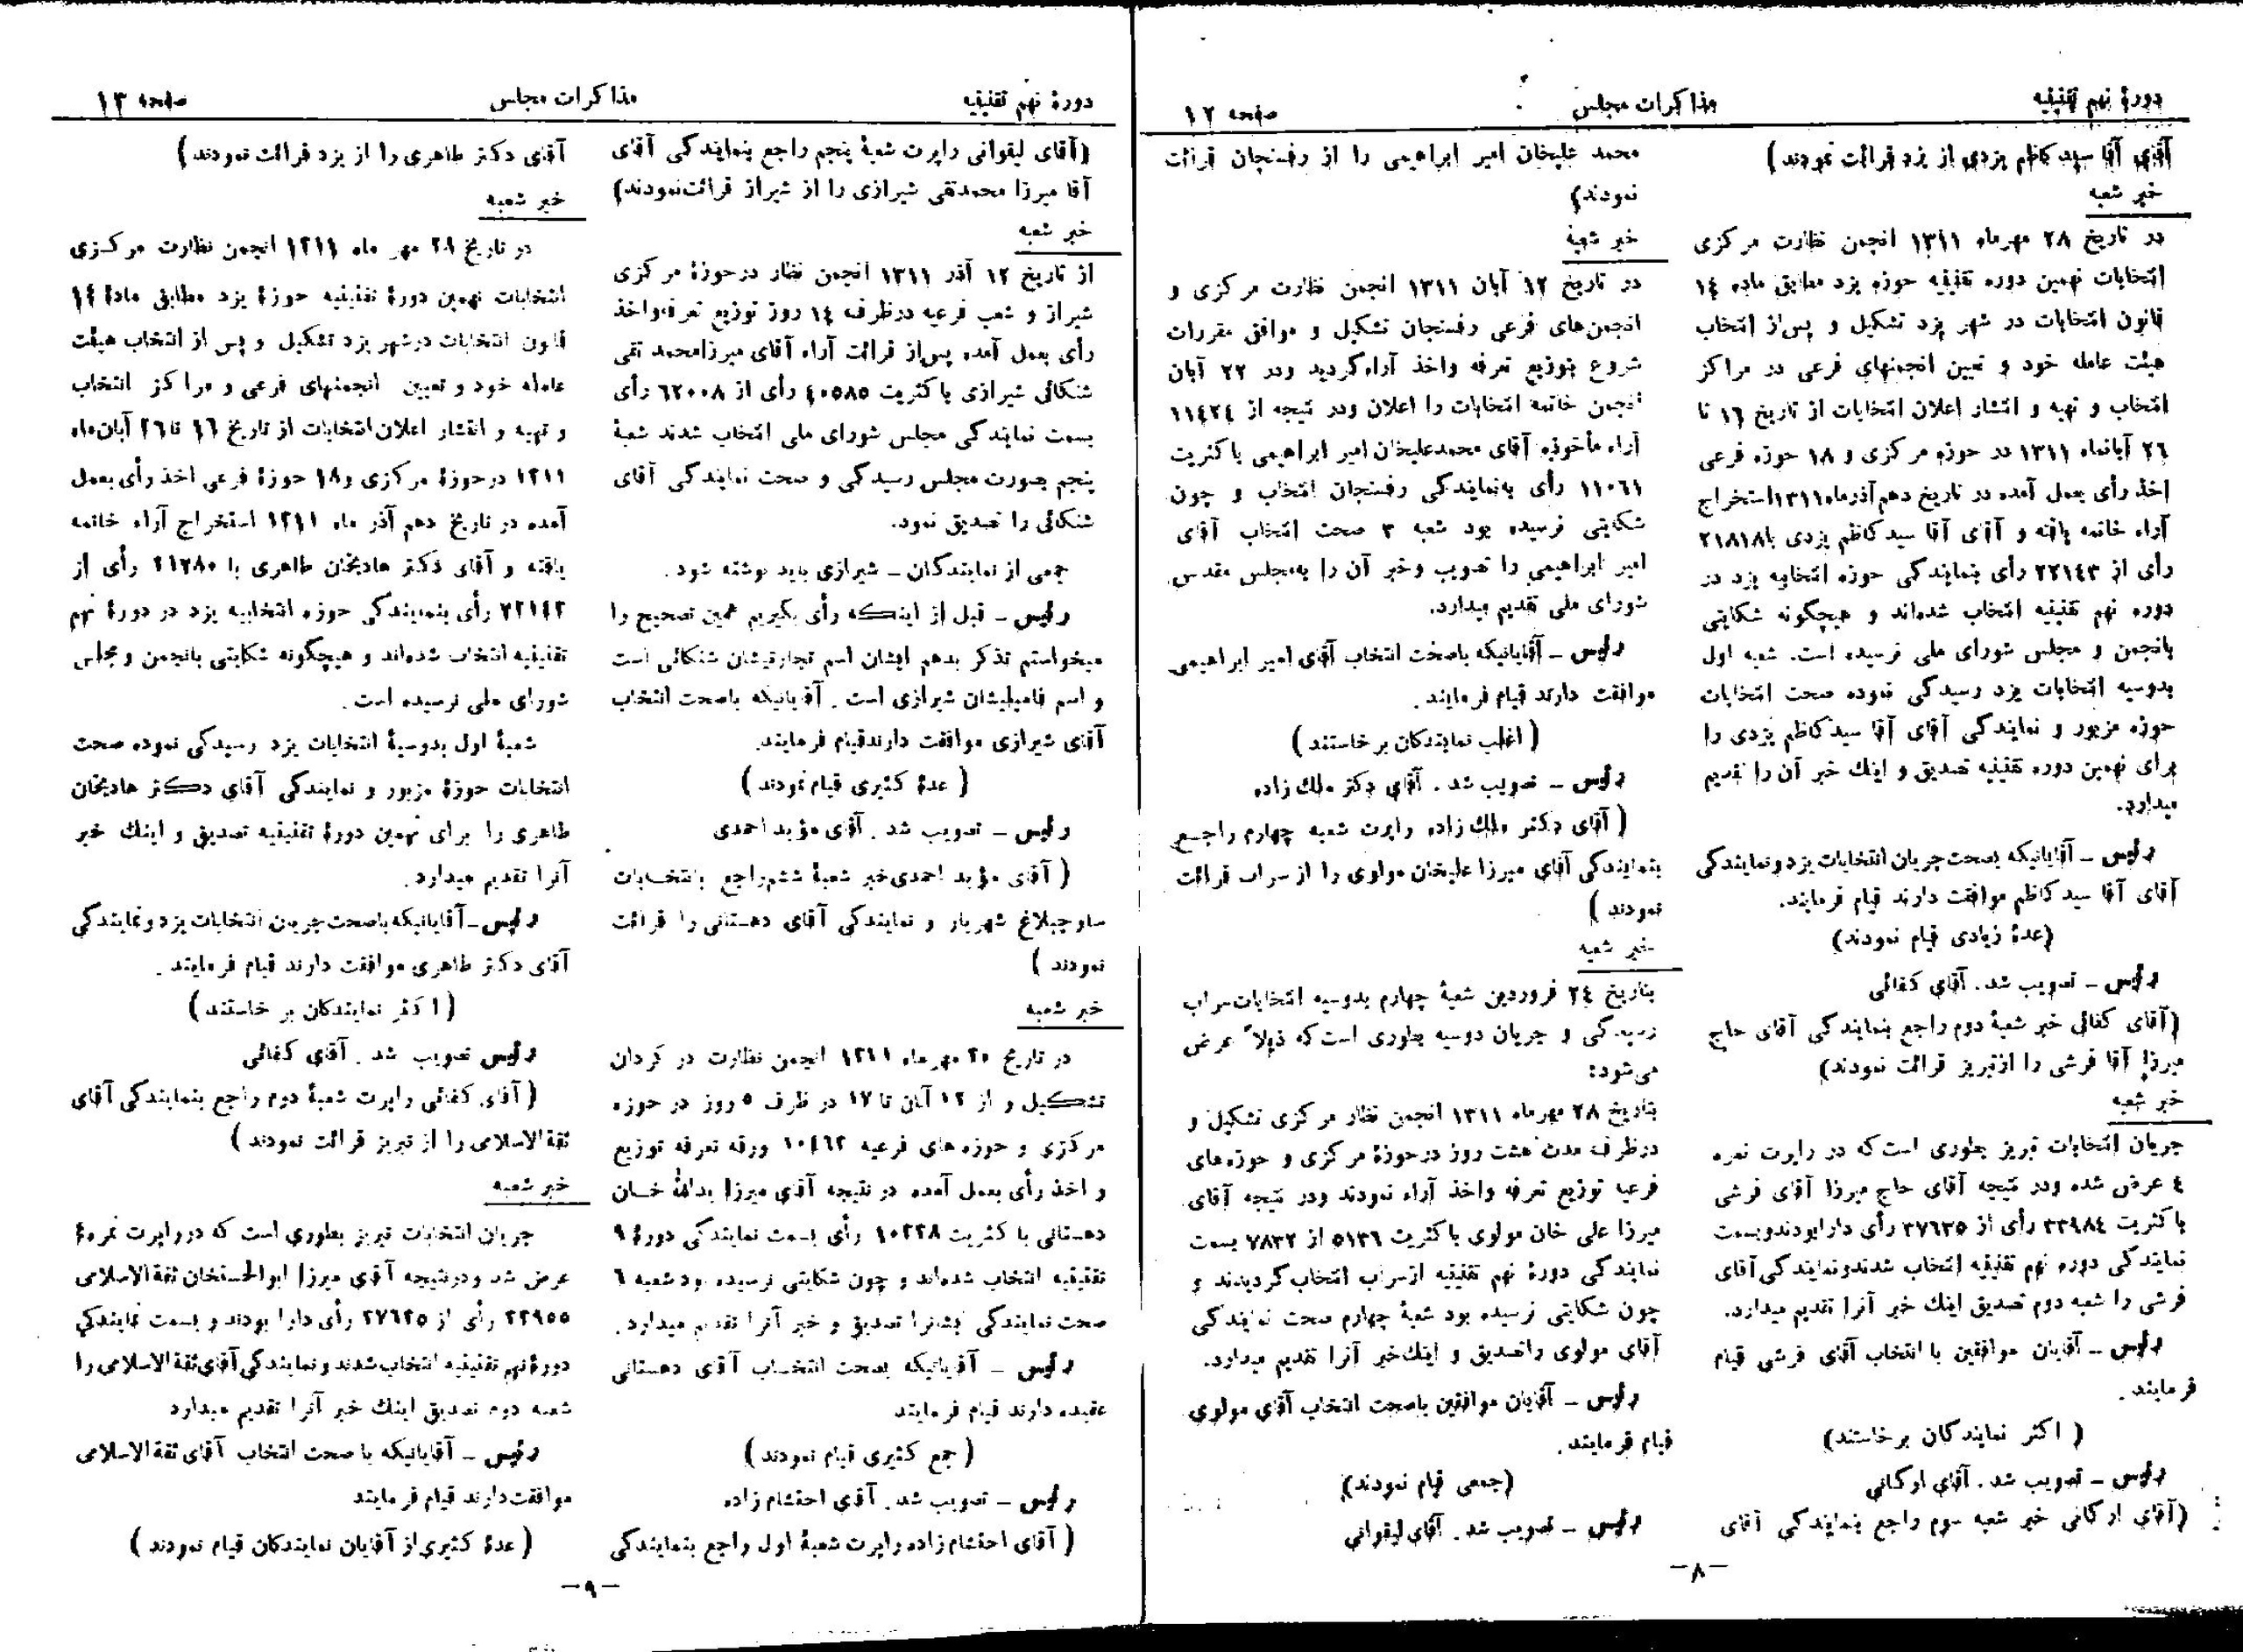 دورهٔ نهم تقنینیه
مذاکرات مجلس
صفحه ۱۲
آقای آقا سید کاظم یزدی از یزد قرائت نمودند)
خبر شعبه
در تاریخ ۲۸ مهرماه ۱۳۱۱ انجمن نظارت مرکزی
انتخابات نهمین دوره تقنینیه حوزه یزد مطابق ماده ۱۴
قانون انتخابات در شهر یزد تشکیل و پس‌از انتخاب
هیئت عامله خود و تعیین انجمنهای فرعی در مراکز
انتخاب و تهیه و انتشار اعلان انتخابات از تاریخ ۱۶ تا
۲۶ آبانماه ۱۳۱۱ در حوزه مرکزی و ۱۸ حوزه فرعی
اخذ رأی بعمل آمده در تاریخ دهم آذرماه ۱۳۱۱ استخراج
آراء خاتمه یافته و آقای آقا سید کاظم یزدی با ۲۱۸۱۸
رأی از ۲۲۱۴۳ رأی بنمایندگی حوزه انتخابیه یزد در
دوره نهم تقنینیه انتخاب شده‌اند و هیچگونه شکایتی
بانجمن و مجلس شورای ملی نرسیده است. شعبه اول
بدوسیه انتخابات یزد رسیدگی نموده صحت انتخابات
حوزه مزبور و نمایندگی آقای آقا سید کاظم یزدی را
برای نهمین دوره تقنینیه تصدیق و اینك خبر آن را تقدیم
میدارد.
رئیس ــ آقایانیکه بصحت جریان انتخابات یزد و نمایندگی
آقای آقا سید کاظم موافقت دارند قیام فرمایند.
(عدهٔ زیادی قیام نمودند)
رئیس ــ تصویب شد. آقای کفائی
(آقای کفائی خبر شعبهٔ دوم راجع بنمایندگی آقای حاج
میرزا آقا فرشی را ازتبریز قرائت نمودند)
خبر شعبه
جریان انتخابات تبریز بطوری است که در راپرت نمره
۴ عرض شده ودر نتیجه آقای حاج میرزا آقای فرشی
باکثریت ۳۳۹۸۴ رأی از ۳۷۶۳۵ رأی دارا بودندو بسمت
نمایندگی دوره نهم تقنینیه انتخاب شدندو نمایندگی آقای
فرشی را شعبه دوم تصدیق اینك خبر آنرا تقدیم میدارد.
رئیس ــ آقایان موافقین با انتخاب آقای فرشی قیام
فرمایند.
( اکثر نمایندگان برخاستند)
رئیس ــ تصویب شد. آقای ارکانی
(آقای ارکانی خبر شعبه سوم راجع بنمایندگی آقای
محمد علیخان امیر ابراهیمی را از رفسنجان قرائت
نمودند)
خبر شعبهٔ
در تاریخ ۱۲ آبان ۱۳۱۱ انجمن نظارت مرکزی و
انجمن‌های فرعی رفسنجان تشکیل و موافق مقررات
شروع بتوزیع تعرفه واخذ آراءگردید ودر ۲۲ آبان
انجمن خاتمه انتخابات را اعلان ودر نتیجه از ۱۱۴۲۴
آراء مأخوذه آقای محمدعلیخان امیر ابراهیمی باکثریت
۱۱۰۶۱ رأی به‌نمایندگی رفسنجان انتخاب و چون
شکایتی نرسیده بود شعبه ۳ صحت انتخاب آقای
امیر ابراهیمی را تصویب وخبر آن را به‌مجلس مقدس
شورای ملی تقدیم میدارد.
رئیس ــ آقایانیکه باصحت انتخاب آقای امیر ابراهیمی
موافقت دارند قیام فرمایند.
( اغلب نمایندگان برخاستند)
رئیس ــ تصویب شد. آقای دکتر ملك زاده
( آقای دکتر ملك زاده راپرت شعبه چهارم راجع
بنمایندگی آقای میرزا علیخان مولوی را از سراب قرائت
نمودند )
خبر شعبه
بتاریخ ۲۴ فروردین شعبهٔ چهارم بدوسیه انتخابات سراب
رسیدگی و جریان دوسیه بطوری است که ذیلاً عرض
می‌شود:
بتاریخ ۲۸ مهرماه ۱۳۱۱ انجمن نظار مرکزی تشکیل و
درظرف مدت هشت روز درحوزهٔ مرکزی و حوزه‌های
فرعیه توزیع تعرفه واخذ آراء نمودند ودر نتیجه آقای
میرزا علی خان مولوی باکثریت ۵۱۳۶ از ۷۸۳۲ بسمت
نمایندگی دورهٔ نهم تقنینیه ازسراب انتخاب گردیدند و
چون شکایتی نرسیده بود شعبهٔ چهارم صحت نمایندگی
آقای مولوی راتصدیق و اینك‌خبر آنرا تقدیم میدارد.
رئیس ــ آقایان موافقین باصحت انتخاب آقای مولوی
قیام فرمایند.
(جمعی قیام نمودند)
رئیس ــ تصویب شد. آقای لیقوانی
ــ۸ــ
دورهٔ نهم تقنینیه
مذاکرات مجلس
صفحه ۱۳
(آقای لیقوانی راپرت شعبهٔ پنجم راجع بنمایندگی آقای
آقا میرزا محمدتقی شیرازی را از شیراز قرائت نمودند)
خبر شعبه
از تاریخ ۱۲ آذر ۱۳۱۱ انجمن نظار درحوزهٔ مرکزی
شیراز و شعب فرعیه درظرف ۱۴ روز توزیع تعرفه‌واخذ
رأی بعمل آمده پس‌از قرائت آراء آقای میرزامحمد تقی
شنکائی شیرازی باکثریت ۴۰۵۸۵ رأی از ۶۲۰۰۸ رأی
بسمت نمایندگی مجلس شورای ملی انتخاب شدند شعبهٔ
پنجم بصورت مجلس رسیدگی و صحت نمایندگی آقای
شنکائی را تصدیق نمود.
جمعی از نمایندگان ــ شیرازی باید نوشته شود.
رئیس ــ قبل از اینکه رأی بگیریم همین تصحیح را
میخواستم تذکر بدهم ایشان اسم تجارتیشان شنکائی است
و اسم فامیلیشان شیرازی است . آقایانیکه باصحت انتخاب
آقای شیرازی موافقت دارندقیام فرمایند.
( عدهٔ کثیری قیام نمودند )
رئیس ــ تصویب شد . آقای مؤید احمدی
( آقای مؤید احمدی‌خبر شعبهٔ ششم‌راجع بانتخابات
ساوجبلاغ شهریار و نمایندگی آقای دهستانی را قرائت
نمودند )
خبر شعبه
در تاریخ ۲۰ مهرماه ۱۳۱۱ انجمن نظارت در کردان
تشکیل و از ۱۲ آبان تا ۱۷ در ظرف ۵ روز در حوزه
مرکزی و حوزه های فرعیه ۱۰۴۶۲ ورقه تعرفه توزیع
و اخذ رأی بعمل آمده در نتیجه آقای میرزا یدالله خان
دهستانی با کثریت ۱۰۲۲۸ رأی بسمت نمایندگی دورهٔ ۹
تقنینیه انتخاب شده‌اند و چون شکایتی نرسیده بود شعبه ۶
صحت نمایندگی ایشانرا تصدیق و خبر آنرا تقدیم میدارد.
رئیس ــ آقایانیکه بصحت انتخاب آقای دهستانی
عقیده دارند قیام فرمایند
( جمع کثیری قیام نمودند )
رئیس ــ تصویب شد. آقای احتشام زاده
( آقای احتشام زاده راپرت شعبهٔ اول راجع بنمایندگی
آقای دکتر طاهری را از یزد قرائت نمودند)
خبر شعبه
در تاریخ ۲۸ مهر ماه ۱۳۱۱ انجمن نظارت مرکزی
انتخابات نهمین دورهٔ تقنینیه حوزهٔ یزد مطابق مادهٔ ۱۴
قانون انتخابات درشهر یزد تشکیل و پس از انتخاب هیئت
عامله خود و تعیین انجمنهای فرعی و مراکز انتخاب
و تهیه و انتشار اعلان انتخابات از تاریخ ۱۶ تا ۲۶ آبان‌ماه
۱۳۱۱ درحوزهٔ مرکزی و ۱۸ حوزهٔ فرعی اخذ رأی بعمل
آمده در تاریخ دهم آذر ماه ۱۳۱۱ استخراج آراء خاتمه
یافته و آقای دکتر هادیخان طاهری با ۲۱۲۸۰ رأی از
۲۲۱۴۳ رأی بنمایندگی حوزه انتخابیه یزد در دورهٔ نهم
تقنینیه انتخاب شده‌اند و هیچگونه شکایتی بانجمن و مجلس
شورای ملی نرسیده است.
شعبهٔ اول بدوسیهٔ انتخابات یزد رسیدگی نموده صحت
انتخابات حوزهٔ مزبور و نمایندگی آقای دکتر هادیخان
طاهری را برای نهمین دورهٔ تقنینیه تصدیق و اینك خبر
آنرا تقدیم میدارد.
رئیس ــ آقایانیکه باصحت جریان انتخابات یزد و نمایندگی
آقای دکتر طاهری موافقت دارند قیام فرمایند .
( اکثر نمایندگان برخاستند )
رئیس تصویب شد . آقای کفائی
( آقای کفائی راپرت شعبهٔ دوم راجع بنمایندگی آقای
ثقةالاسلامی را از تبریز قرائت نمودند )
خبر شعبه
جریان انتخابات تبریز بطوری است که درراپرت نمرهٔ
عرض شد ودرنتیجه آقای میرزا ابوالحسنخان ثقةالاسلامی
۲۲۹۵۵ رأی از ۳۷۶۳۵ رأی دارا بودند و بسمت نمایندگی
دورهٔ نهم تقنینیه انتخاب شدند و نمایندگی آقای ثقةالاسلامی را
شعبه دوم تصدیق اینك خبر آنرا تقدیم میدارد
رئیس ــ آقایانیکه با صحت انتخاب آقای ثقةالاسلامی
موافقت دارند قیام فرمایند
( عدهٔ کثیری از آقایان نمایندگان قیام نمودند )
ــ۹ــ